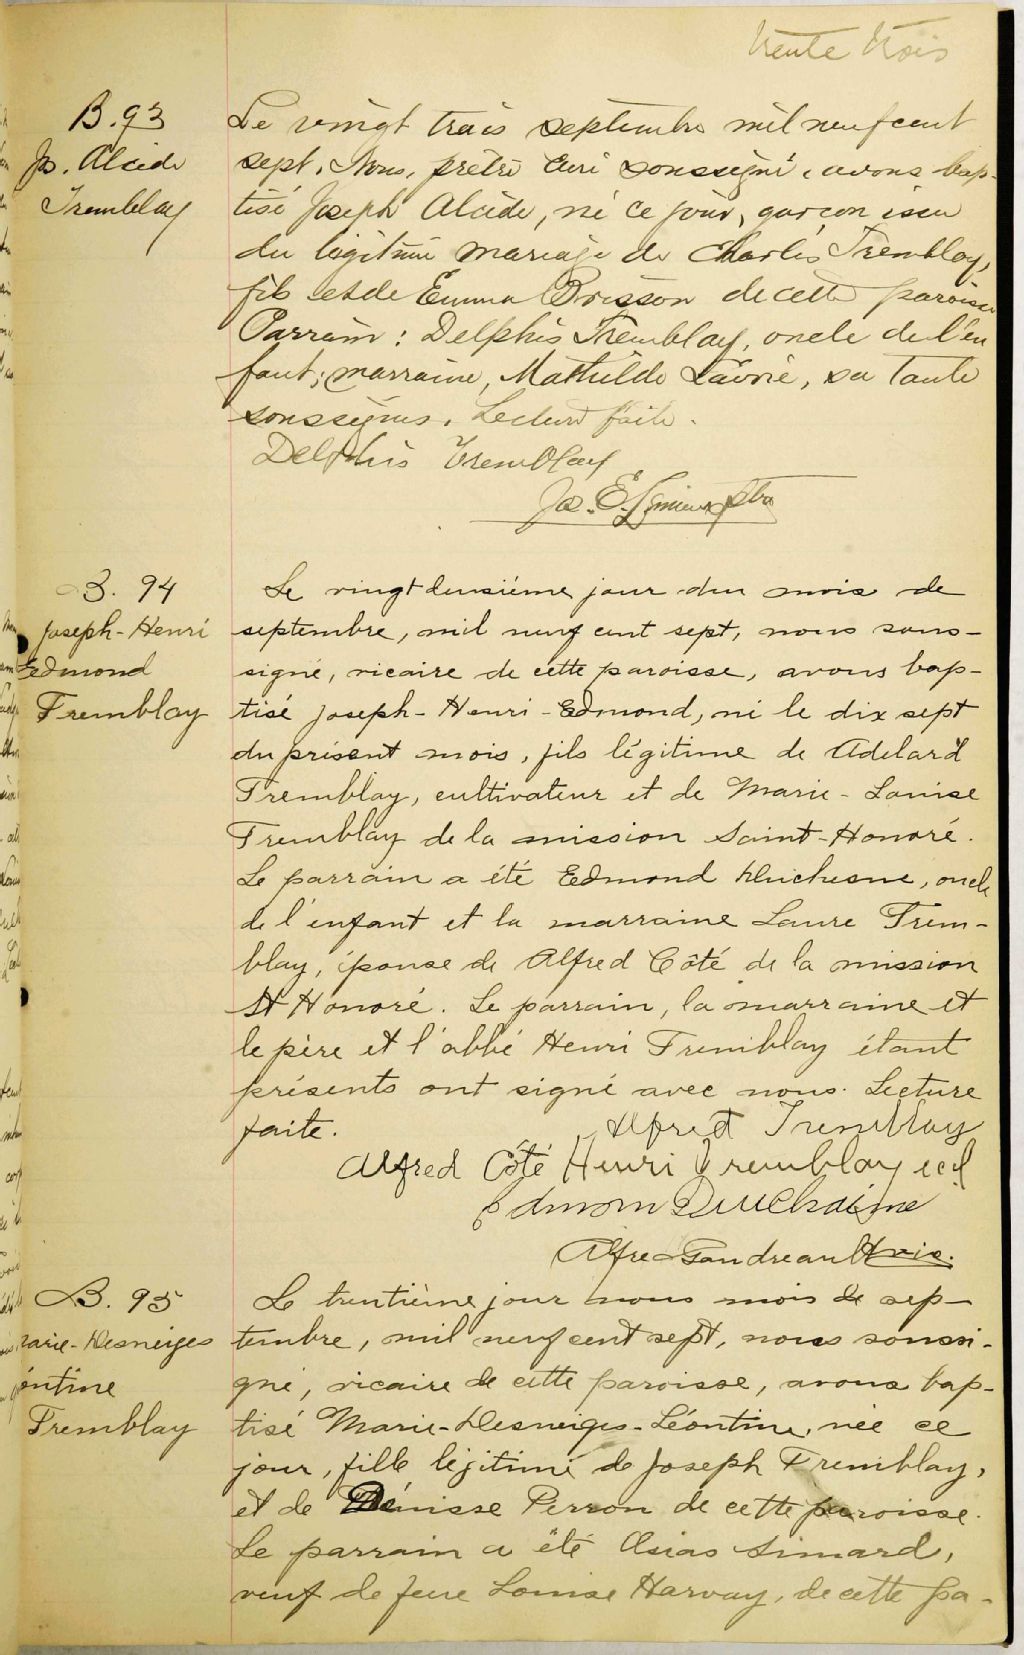 trente trois
B. 93
Js. Alcide
Tremblay
Le vingt trois septembre mil neuf cent
sept, Nous, prêtre curé soussigné, avons bap-
tisé Joseph Alcide, né ce jour, garçon issu
du légitime mariage de Charles Tremblay,
fils et de Emma Brisson de cette paroisse
Parrain : Delphis Tremblay, oncle de l'en
fant; marraine, Mathilde Lavoie, sa tante
soussignés. Lecture faite.
Delphis Tremblay
Jos. E. Lemieux ptre
B. 94
Joseph-Henri
Edmond
Tremblay
Le vingt deuxième jour du mois de
septembre, mil neuf cent sept, nous sous-
signé, vicaire de cette paroisse, avons bap-
tisé Joseph-Henri-Edmond, né le dix sept
du présent mois, fils légitime de Adelard
Tremblay, cultivateur et de Marie-Louise
Tremblay de la mission Saint-Honoré.
Le parrain a été Edmond Duchesne, oncle
de l'enfant et la marraine Laure Trem-
blay, épouse de Alfred Côté de la mission
St Honoré. Le parrain, la marraine et
le père et l'abbé Henri Tremblay étant
présents ont signé avec nous. Lecture
faite.
Alfred Tremblay
Alfred Côté Henri Tremblay eccl
Edmon Duchaine
Alfred Gaudreault vic.
B. 95
Marie-Desneiges
Léontine
Tremblay
Le trentième jour nous mois de sep-
tembre, mil neuf cent sept, nous soussi-
gné, vicaire de cette paroisse, avons bap-
tisé Marie-Desneiges-Léontine, née ce
jour, fille légitime de Joseph Tremblay,
et de Dénisse Perron de cette paroisse.
Le parrain a été Osias Simard,
veuf de feue Louise Harvay, de cette pa-